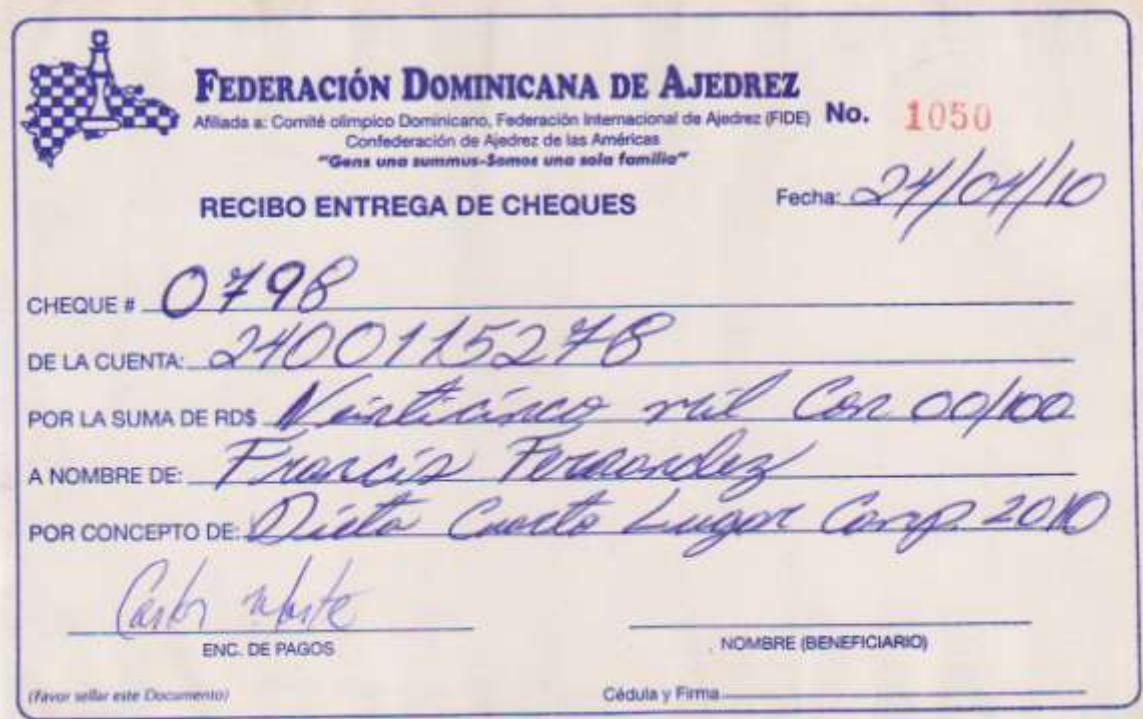 FEDERACIÓN DOMINICANA DE AJEDREZ
Afiliada a: Comité olímpico Dominicano, Federación Internacional de Ajedrez (FIDE) No. 1050
Confederación de Ajedrez de las Américas
"Gens una summus-Somos una sola familia"
RECIBO ENTREGA DE CHEQUES
Fecha: 24/04/10
CHEQUE # 0798
DE LA CUENTA: 2400115278
POR LA SUMA DE RD$ Veinticinco mil Con 00/100
A NOMBRE DE: Francis Fernandez
POR CONCEPTO DE: Dieta Cuarto Lugar Camp. 2010
Carlos Marte
ENC. DE PAGOS
NOMBRE (BENEFICIARIO)
(Favor sellar este Documento)
Cédula y Firma